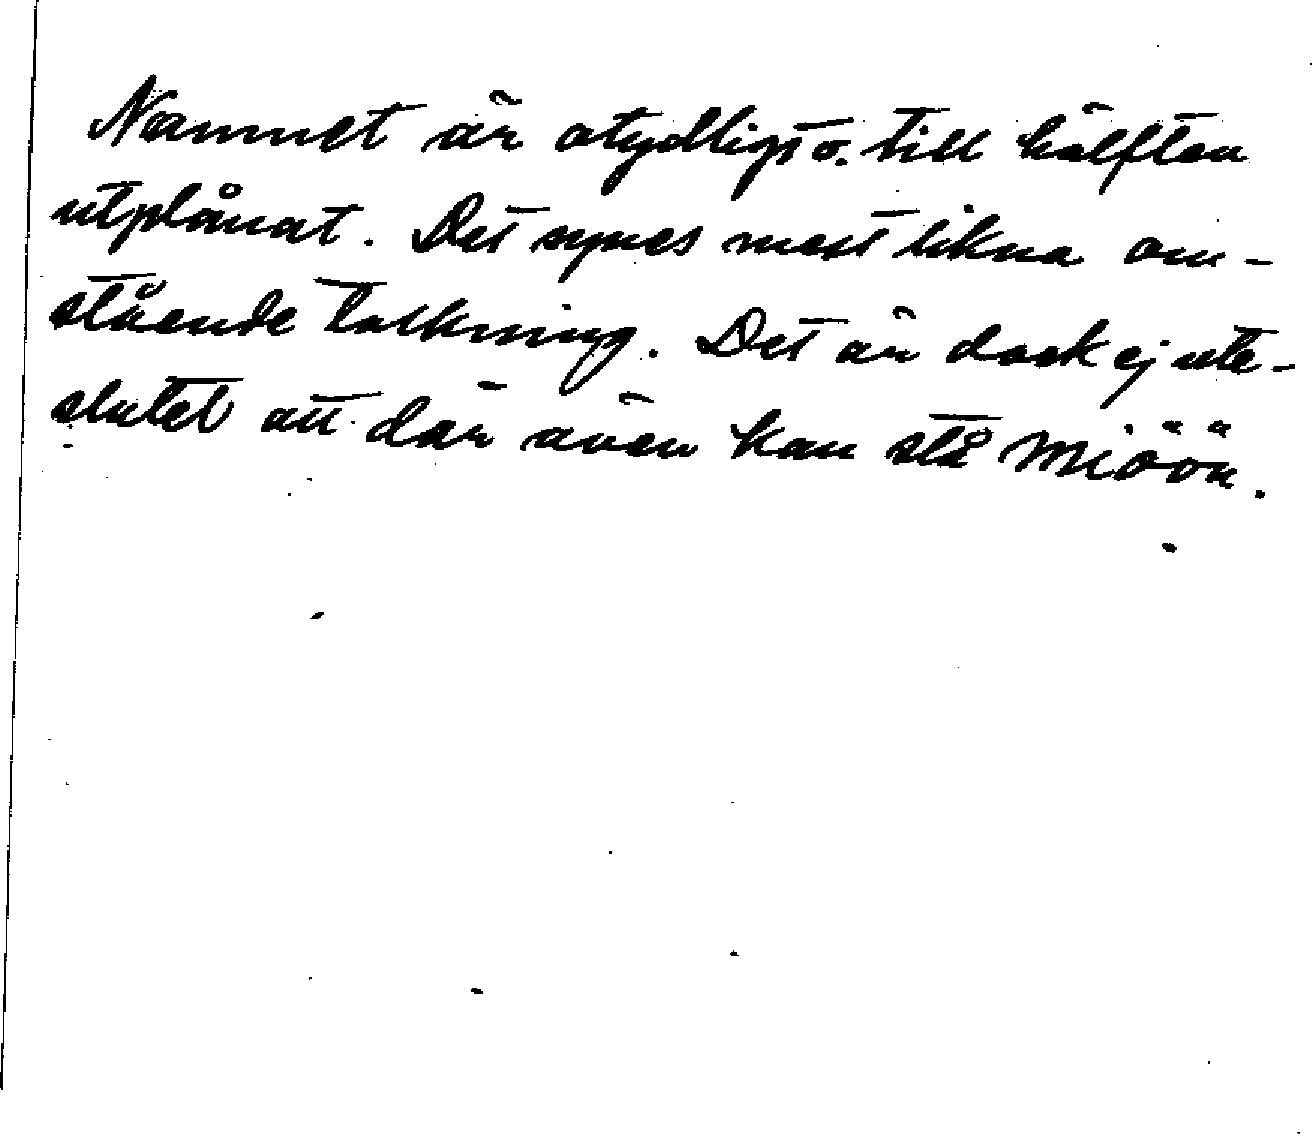 Namnet är otydligt o. till hälften
utplånat. Det synes mest likna om-
stående tolkning. Det är dock ej ute-
slutet att där även kan stå Miöön.